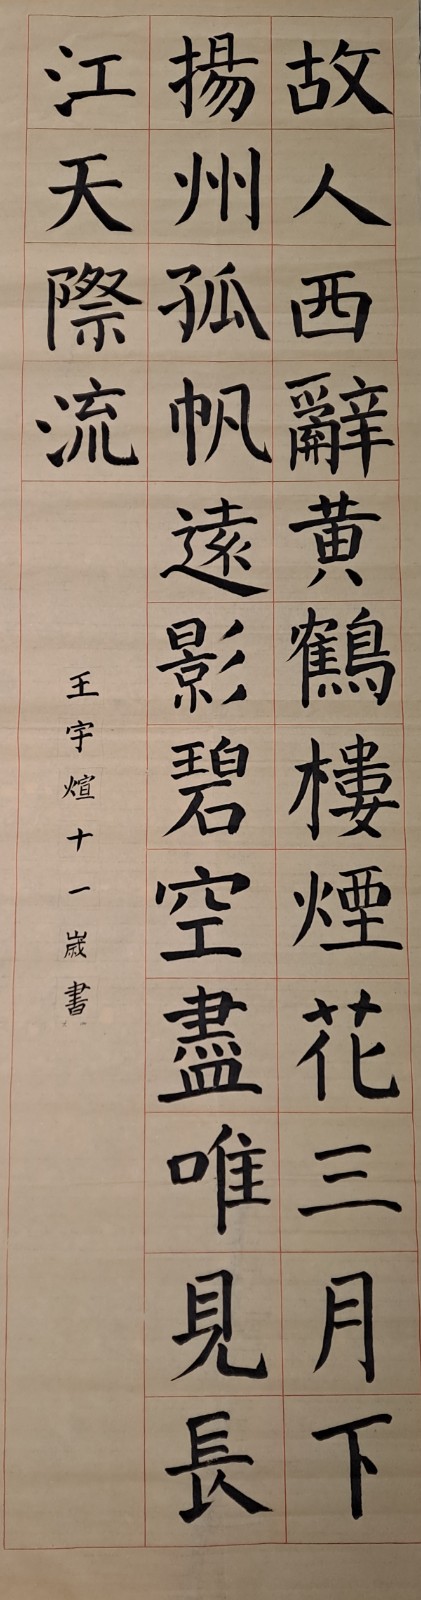 故人西辭黃鶴樓煙花三月下
揚州孤帆遠影碧空盡唯見長
江天際流
王宇煊十一歲書